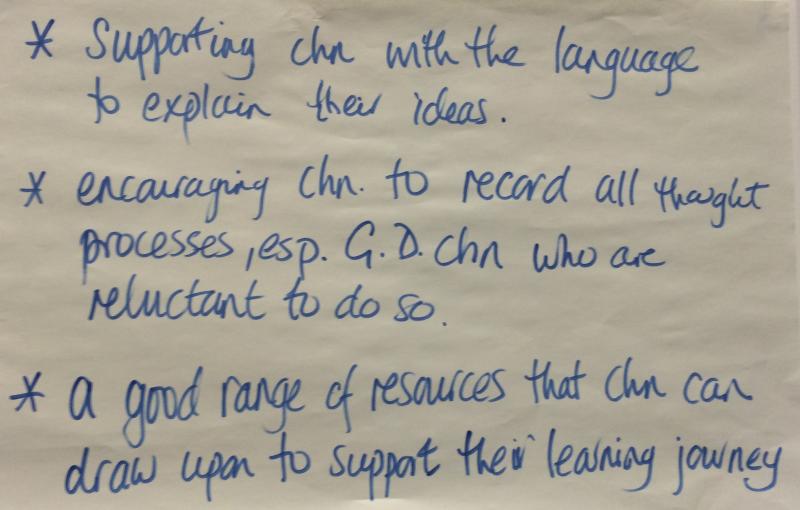 * Supporting chn with the language
to explain their ideas.
* encouraging chn. to record all thought
processes, esp. G.D. chn who are
reluctant to do so.
* a good range of resources that chn can
draw upon to support their learning journey